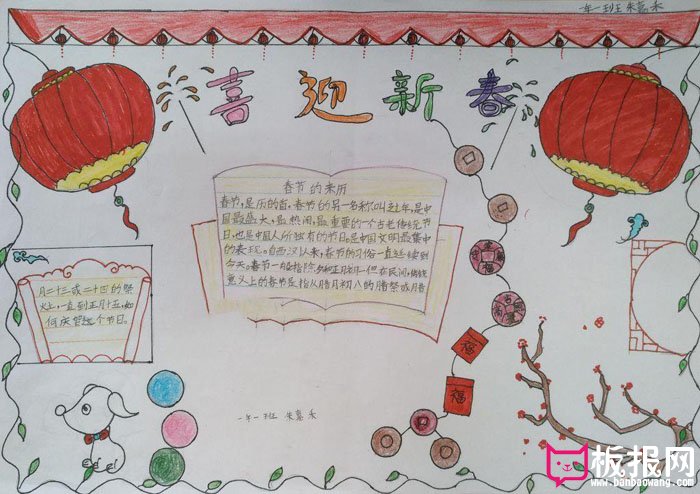 一年一班 朱嘉禾
喜迎新春
春节的来历
春节,是历的首,春节的另一名称叫过年,是中
国最盛大,最热闹,最重要的一个古老传统节
日,也是中国人所独有的节日。是中国文明最集中
的表现。自西汉以来,春节的习俗一直延续到
今天。春节一般指除夕和正月初一。但在民间,传统
意义上的春节是指从腊月初八的腊祭或腊
月二十三或二十四的祭
灶,一直到正月十五,如
何庆贺这个节日。
福
福
福
一年一班 朱嘉禾
板报网
www.banbaowang.com